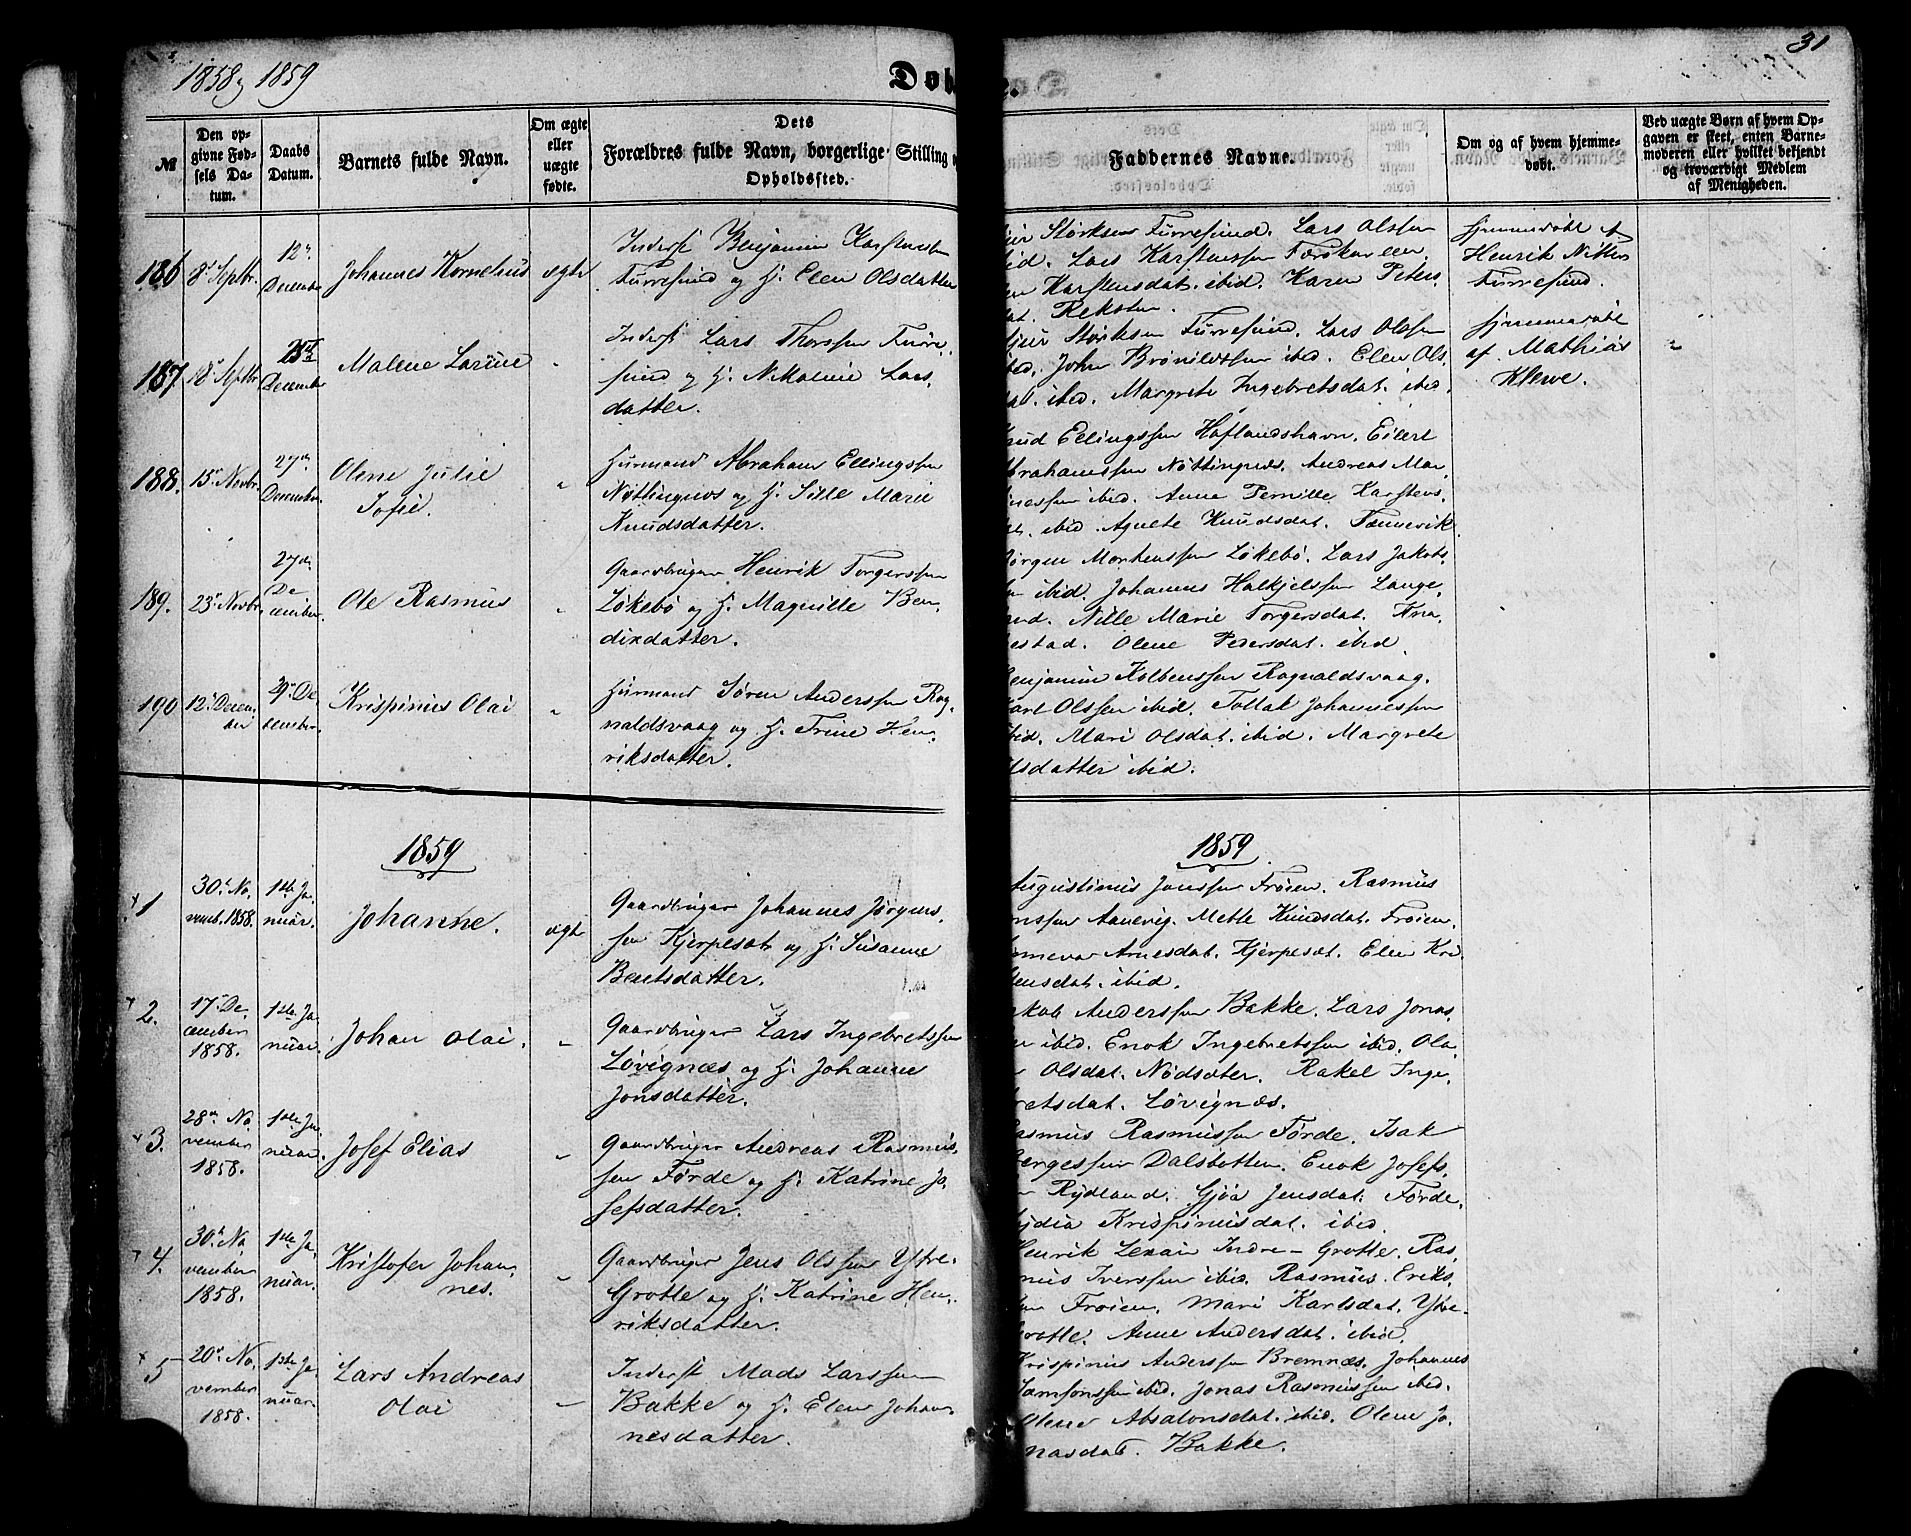 1858 & 1859
Døb
31
№
Den opgivne Fødsels Datum.
Daabs Datum.
Barnets fulde Navn.
Om ægte eller uægte fødte.
Dets
Forældres fulde Navn, borgerlige Stilling
Opholdssted.
Faddernes Navne.
Om og af hvem hjemmedøbt.
Ved uægte Børn af hvem Opgaven er skeet, enten Barnemoderen eller hvilket bekjendt og troværdigt Medlem af Menigheden.
186
8de Septbr.
12te December
Johannes Kornelius
ægte
Inderst Benjamin Karstensen
Furresund og H. Elen Olsdatter
Størksen Furresund. Lars Olssen
ibid. Lars Karstenssen
Karstensdat. ibid. Karen Peters,
dat. Reksten.
hjemmedøbt af
Henrik Nitter
Furresund.
187
18 Septbr
December
Malene Larine
Inderst Lars Thorssen Furre,
sund og H. Nikoline Lars,
datter.
Størksen Furresund. Lars Olssen
ibid. John Brønildssen ibid. Elen Ols,
dat. ibid. Margrete Ingebretsdat. ibid.
hjemmedøbt
af Mathias
Kleve.
188.
15 Novbr.
27de December.
Olene Julie
Sofie.
Huusmand Abraham Ellingssen
Nøttingnes og H. Sille Marie
Knudsdatter.
Knud Ellingssen Haflandshavn. Eilert
Abrahamssen Nøttingnes. Andreas Mar,
ibid. Anne Pernille Karstens,
dat. ibid. Agnete Knudsdat. Tennevik
189.
23 Novbr.
27de December.
Ole Rasmus
Gaardbruger Henrik Torgerssen
Løkebø og H. Magnille Ben,
dixdatter.
Jørgen Mortenssen Løkebø. Lars Jakobs,
ibid. Johannes Halkjelssen Lange,
Nille Marie Torgersdat. Kna,
estad. Olene Pedersdat. ibid.
190
12 December
29 December.
Krispinus Olai
Huusmand Søren Anderssen Rag,
naldsvaag og H. Trine Hen,
riksdatter.
Benjamin Kolbenssen Ragnaldsvaag.
Karl Olssen ibid. Tollak Johannessen
ibid. Mari Olsdat. ibid. Margrete
Olsdatter ibid.
1859
1859
1
30 No,
vemb. 1858.
1ste Ja,
nuar.
Johanne.
ægte
Gaardbruger Johannes Jørgens,
sen Kjerpeset og H. Susanne
Bentsdatter.
Augustinus Jonssen Frøien. Rasmus
Aanevig. Mette Knudsdat. Frøien.
Arnesdat. Kjerpeset. Elen Kri,
stensdat. ibid.
2.
17 De,
cember
1858.
1ste Ja,
nuar.
Johan Olai.
Gaardbruger Lars Ingebretssen
Løvignæs og H. Johanne
Jonsdatter.
Jakob Anderssen Bakke. Lars Jonas,
sen ibid. Enok Ingebretssen ibid. Ola,
Olsdat. Nødsæter. Rakel Inge,
bretsdat. Løvignæs.
3.
28 No,
vember
1858.
1ste Ja,
nuar.
Josef Elias
Gaardbruger Andreas Rasmus,
sen Førde og H. Katrine Jo,
sefsdatter.
Rasmus Rasmussen Førde. Isak
Dalsbotten. Enok Josefs,
sen Rydland. Gjøa Jensdat. Førde.
Lydia Krispinusdat. ibid.
4.
30 No
vember
1858.
1ste Ja,
nuar.
Kristofer Johan,
nes.
Gaardbruger Jens Olssen Ytre-
Grotle og H. Katrine Hen,
riksdatter.
Henrik Lexau Indre-Grotle. Ras,
mus Iverssen ibid. Rasmus Eriks,
sen Frøien. Mari Karlsdat. Ytre-
Grotle. Anne Andersdat. ibid.
5
20 No,
vember
1858.
1ste Ja,
nuar.
Lars Andreas
Olai
Inderst Mads Larssen
Bakke og H. Elen Johan,
nesdatter.
Krispinus Anderssen Bremnæs. Johannes
Samsonssen ibid. Jonas Rasmussen ibid.
Absalonsdat. ibid. Olene Jo,
nasdat. Bakke.